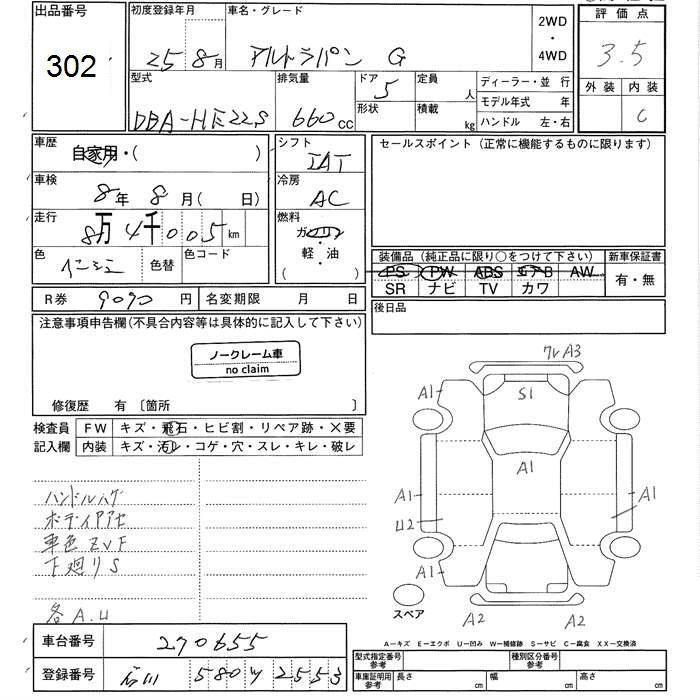 出品番号 初度登録年月 車名・グレード 2WD・4WD 評価点
302 25 8月 アルトラパン G 3.5
型式 排気量 ドア 定員 人 ディーラー・並行 外装 内装
DBA-HE22S 660cc 5 形状 積載 kg モデル年式 年 C
ハンドル 左・右
車歴 自家用・( ) シフト IAT セールスポイント (正常に機能するものに限ります)
車検 8年 8月( 日) 冷房 AC
走行 8万4千005km 燃料 ガソリン
軽・油
( )
色 色替 色コード 装備品 (純正品に限り○をつけて下さい) 新車保証書
PS PW ABS エアB AW 有・無
SR ナビ TV カワ
R券 9090円 名変期限 月 日 後日品
注意事項申告欄(不具合内容等は具体的に記入して下さい)
ノークレーム車
no claim
修復歴 有 〔箇所 〕
検査員 FW キズ・飛石・ヒビ割・リペア跡・×要
記入欄 内装 キズ・汚レ・コゲ・穴・スレ・キレ・破レ
ハンドルハゲ
ボディアアセ
車色ZVF
下廻りS
各A.U
ワレA3
A1 S1
A1
A1 A1
U2
A1
スペア A2 A2
A-キズ E-エクボ U-凹み W-補修跡 S-サビ C-腐食 XX-交換済
車台番号 270655
登録番号 石川 580 ツ 2553
型式指定番号 参考 種別区分番号 参考
車庫証明用 参考 長さ cm 幅 cm 高さ cm